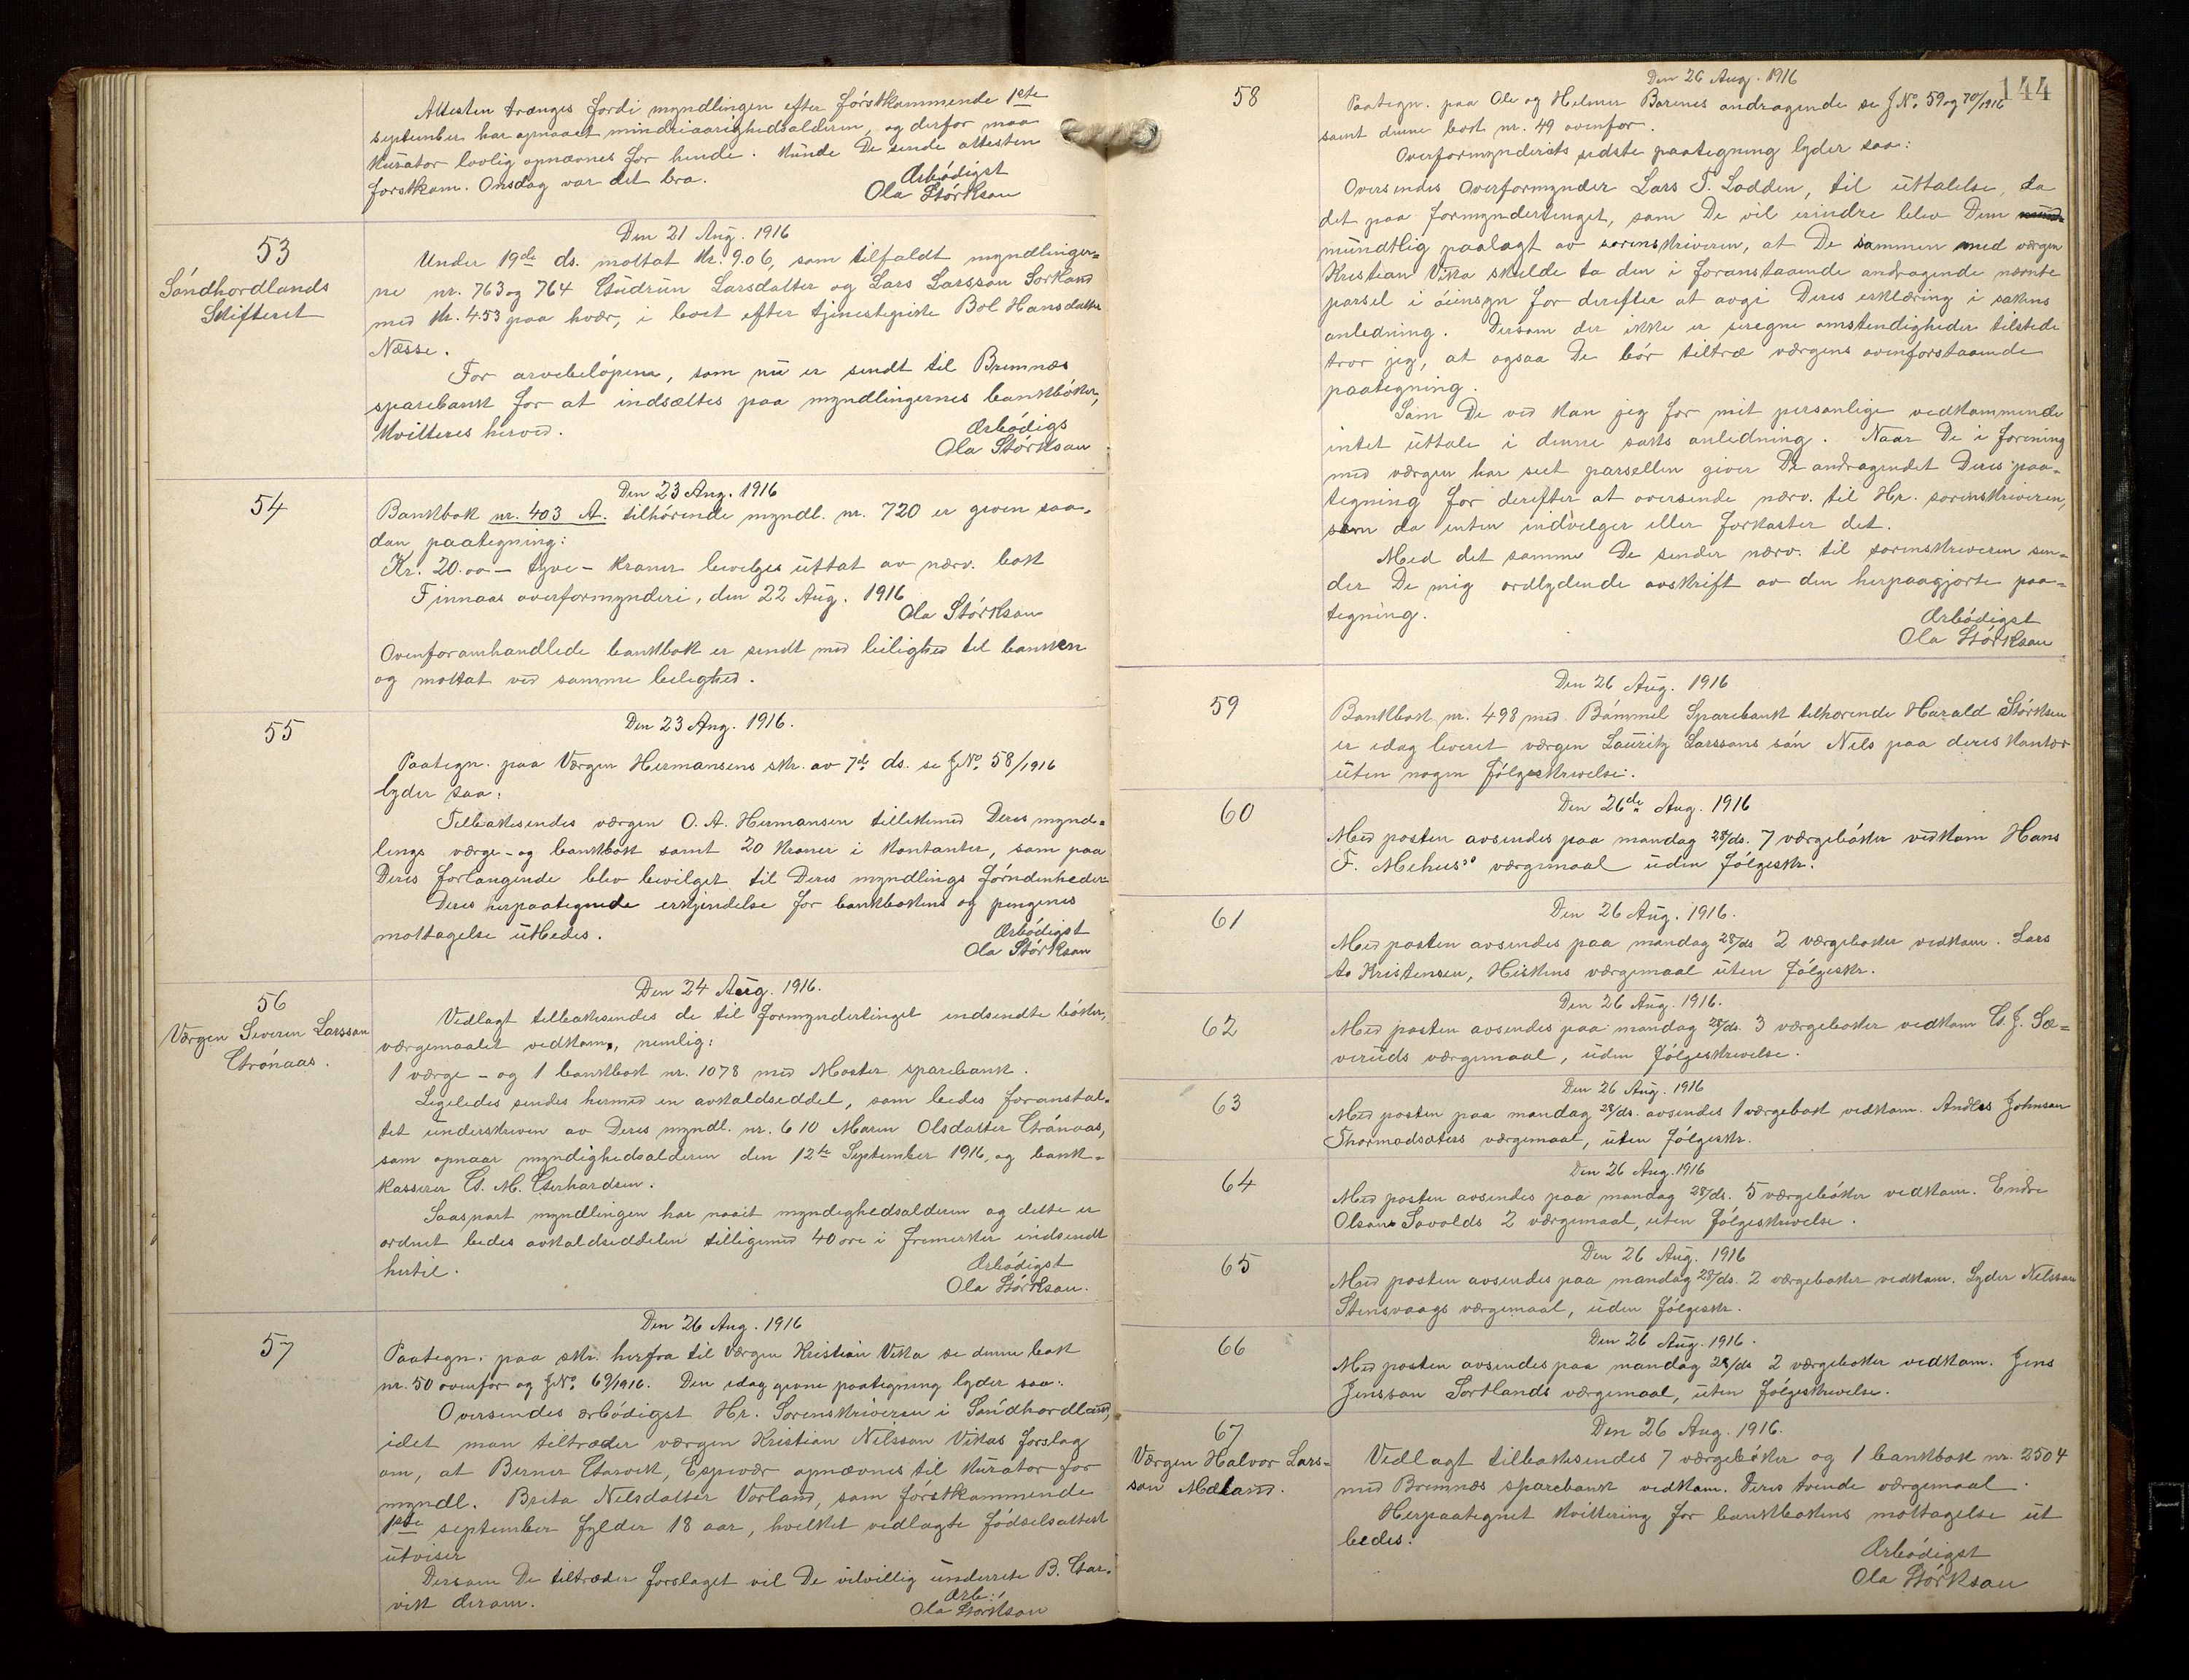 Attesten trænges fordi myndlingen efter førstkommende 1ste
september har opnaaet mindreaarighedsalderen, og derfor maa
Kurator lovlig opnævnes for hende. Kunde De sende attesten
førstkom. Onsdag var det bra.
Ærbødigst
Ola Størkson
53
Søndhordlands
Skifteret
Den 21 Aug. 1916
Under 19de ds. mottat Kr. 9.06, som tilfaldt myndlinger=
ne nr. 763 og 764 Gudrun Larsdatter og Lars Larsson Sorkland
med Kr. 4.53 paa hvær, i boet efter tjenestepike Bol Hansdatter
Næsse.
For arvebeløpene, som nu er sendt til Bremnæs
sparebank for at indsættes paa myndlingernes bankbøker,
kvitteres herved.
Ærbødigs
Ola Størkson
54
Den 23 Aug. 1916
Bankbok nr. 403 A. tilhørende myndl. nr. 720 er given saa-
dan paategning:
Kr. 20.00 - tyve - kroner bevilges uttat av nærv. bok
Finnaas overformynderi, den 22 Aug. 1916
Ola Størkson
Ovenforomhandlede bankbok er sendt med leilighed til banken
og mottat ved samme leilighed.
55
Den 23 Aug. 1916.
Paategn. paa Værgen Hermansens skr. av 7de ds. se J.No. 58/1916
lyder saa:
Tilbakesendes værgen O. A. Hermansen tillikemed Deres mynd=
lings værge- og bankbok samt 20 kroner i kontanter, som paa
Deres forlangende blev bevilget til Deres myndlings fornødenheder
Deres herpaategnede erkjendelse for bankbokens og pengenes
mottagelse utbedes.
Ærbødigst
Ola Størkson
56
Værgen Severin Larsson
Grønaas.
Den 24 Aug. 1916.
Vedlagt tilbakesendes de til formyndertinget indsendte bøker,
værgemaalet vedkom., nemlig:
1 værge- og 1 bankbok nr. 1078 med Moster sparebank.
Ligeledes sendes hermed en avkaldseddel, som bedes foranstal-
tet underskreven av Deres myndl. nr. 610 Maren Olsdatter Grønaas,
som opnaar myndighedsalderen den 12te September 1916, og bank-
kasserer G. M. Gerhardsen.
Saasnart myndlingen har naaet myndighedsalderen og dette er
ordnet bedes avkaldseddelen tilligemed 40 øre i frimerker indsendt
hertil.
Ærbødigst
Ola Størkson.
57
Den 26 Aug. 1916
Paategn. paa skr. herfra til værgen Kristian Vika se denne bok
nr. 50 ovenfor og J.No. 69/1916. Den idag givne paategning lyder saa:
Oversendes ærbødigst Hr. Sorenskriveren i Søndhordland,
idet man tiltræder værgen Kristian Nilsson Vikas forslag
om, at Berner Garvik, Espevær opnævnes til kurator for
myndl. Brita Nilsdatter Vorland, som førstkommende
1ste september fylder 18 aar, hvilket vedlagte fødselsattest
utviser
Dersom De tiltræder forslaget vil De velvillig underrete B. Gar-
vik derom.
Ærb:
Ola Størkson
144
58
Den 26 Aug. 1916
Paategn. paa Ole og Helmer Barenes andragende se J.No. 59 og 70/1916
samt denne bok nr. 49 ovenfor.
Overformynderiets sidste paategning lyder saa:
Oversendes Overformynder Lars T. Lodden, til uttalelse, da
det paa formyndertinget, som De vil erindre blev Dem
mundtlig paalagt av sorenskriveren, at De sammen med værgen
Kristian Vika skulde ta den i foranstaaende andragende nævnte
parsel i øiensyn for derefter at avgi Deres erklæring i sakens
anledning. Dersom der ikke er særegne omstendigheder tilstede
tror jeg, at ogsaa De bør tiltræ værgens ovenforstaaende
paategning.
Som De ved kan jeg for mit personlige vedkommende
intet uttale i denne saks anledning. Naar De i forening
med værgen har seet parsellen giver De andragendet Deres paa-
tegning for derefter at oversende nærv. til Hr. sorenskriveren,
som da enten indvelger eller forkaster det.
Med det samme De sender nærv. til sorenskriveren sen-
der De mig ordlydende avskrift av den herpaagjorte paa-
tegning.
Ærbødigst
Ola Størkson
59
Den 26 Aug. 1916
Bankbok nr. 498 med Bømmel Sparebank tilhørende Harald Størksen
er idag leveret værgen Lauritz Larssons søn Nils paa deres kontor
uten nogen følgeskrivelse.
60
Den 26de Aug. 1916
Med posten avsendes paa mandag 28/ds. 7 værgebøker vedkom Hans
F. Mehus's værgemaal uden følgeskr.
61
Den 26 Aug. 1916.
Med posten avsendes paa mandag 28/ds 2 værgebøker vedkom. Lars
As Kristensen, Hiskens værgemaal uten følgeskr.
62
Den 26 Aug. 1916.
Med posten avsendes paa mandag 28/ds. 3 værgebøker vedkom G. J. Sæ=
veruds værgemaal, uden følgeskrivelse.
63
Den 26 Aug. 1916
Med posten paa mandag 28/ds. avsendes 1 værgebok vedkom. Anders Johnson
Thormodsæters værgemaal, uten følgeskr.
64
Den 26 Aug. 1916
Med posten avsendes paa mandag 28/ds. 5 værgebøker vedkom. Endre
Olsons Lavolds 2 værgemaal, uten følgeskrivelse.
65
Den 26 Aug. 1916
Med posten avsendes paa mandag 28/ds. 2 værgebøker vedkom. Lyder Nilsson
Stensvaags værgemaal, uden følgeskr.
66
Den 26 Aug. 1916.
Med posten avsendes paa mandag 28/ds 2 værgebøker vedkom. Jens
Jensson Sortlands værgemaal, uten følgeskrivelse.
67
Værgen Halvor Lars=
son Mæland.
Den 26 Aug. 1916.
Vedlagt tilbakesendes 7 værgebøker og 1 bankbok nr. 2504
med Bremnæs sparebank vedkom. Deres tvende værgemaal
Herpaategnet kvittering for bankbokens mottagelse ut
bedes.
Ærbødigst
Ola Størkson